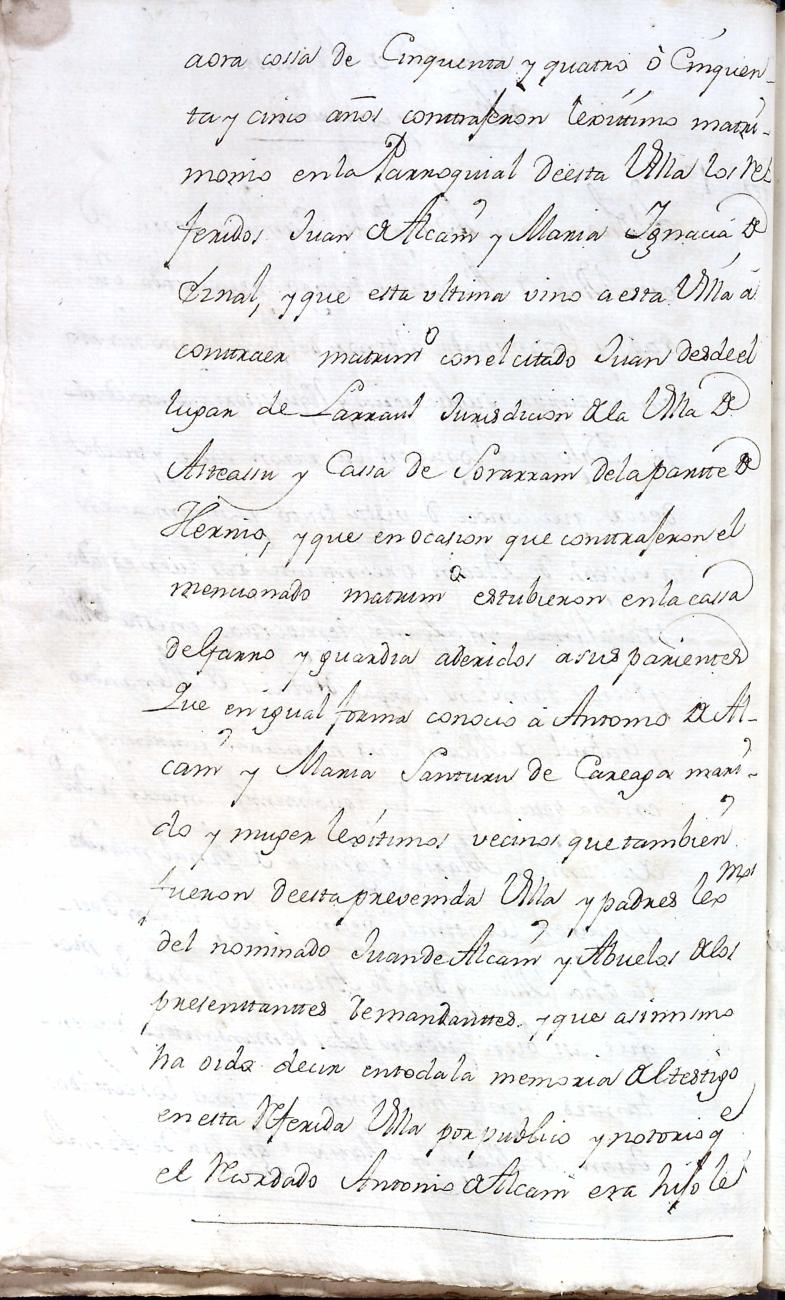 aora cossa de Cinquenta y quatro ò Cinquen-
ta y cinco años contrajeron lexittimo matri-
monio en la Parroquial de esta Villa los Re
feridos Juan de Alcain y Maria Ignacia de
Ernal, y que esta vltima vino a esta Villa â
contraer matrimº con el citado Juan desde el
lugar de Larraul Jurisdicion de la Villa de
Asteassu y Cassa de Sorarrain de la partte de
Hernio, y que en ocasion que contrajeron el
mencionado matrimº estubieron en la cassa
de Garro y guardia aderidos a sus parientes
Que en igual forma conocio â Antonio de Al-
cain y Maria Santuru de Careaga mari-
do y muger lexitimos vecinos que tambien
fueron de esta prevenida Villa y padres lexmos
del nominado Juan de Alcain y Abuelos de los
presenttanttes Demandanttes. y que asimismo
ha oido decir en toda la memoria del testigo
en esta Referida Villa por publico y notorio qe
el Recordado Antonio de Alcain era hijo le